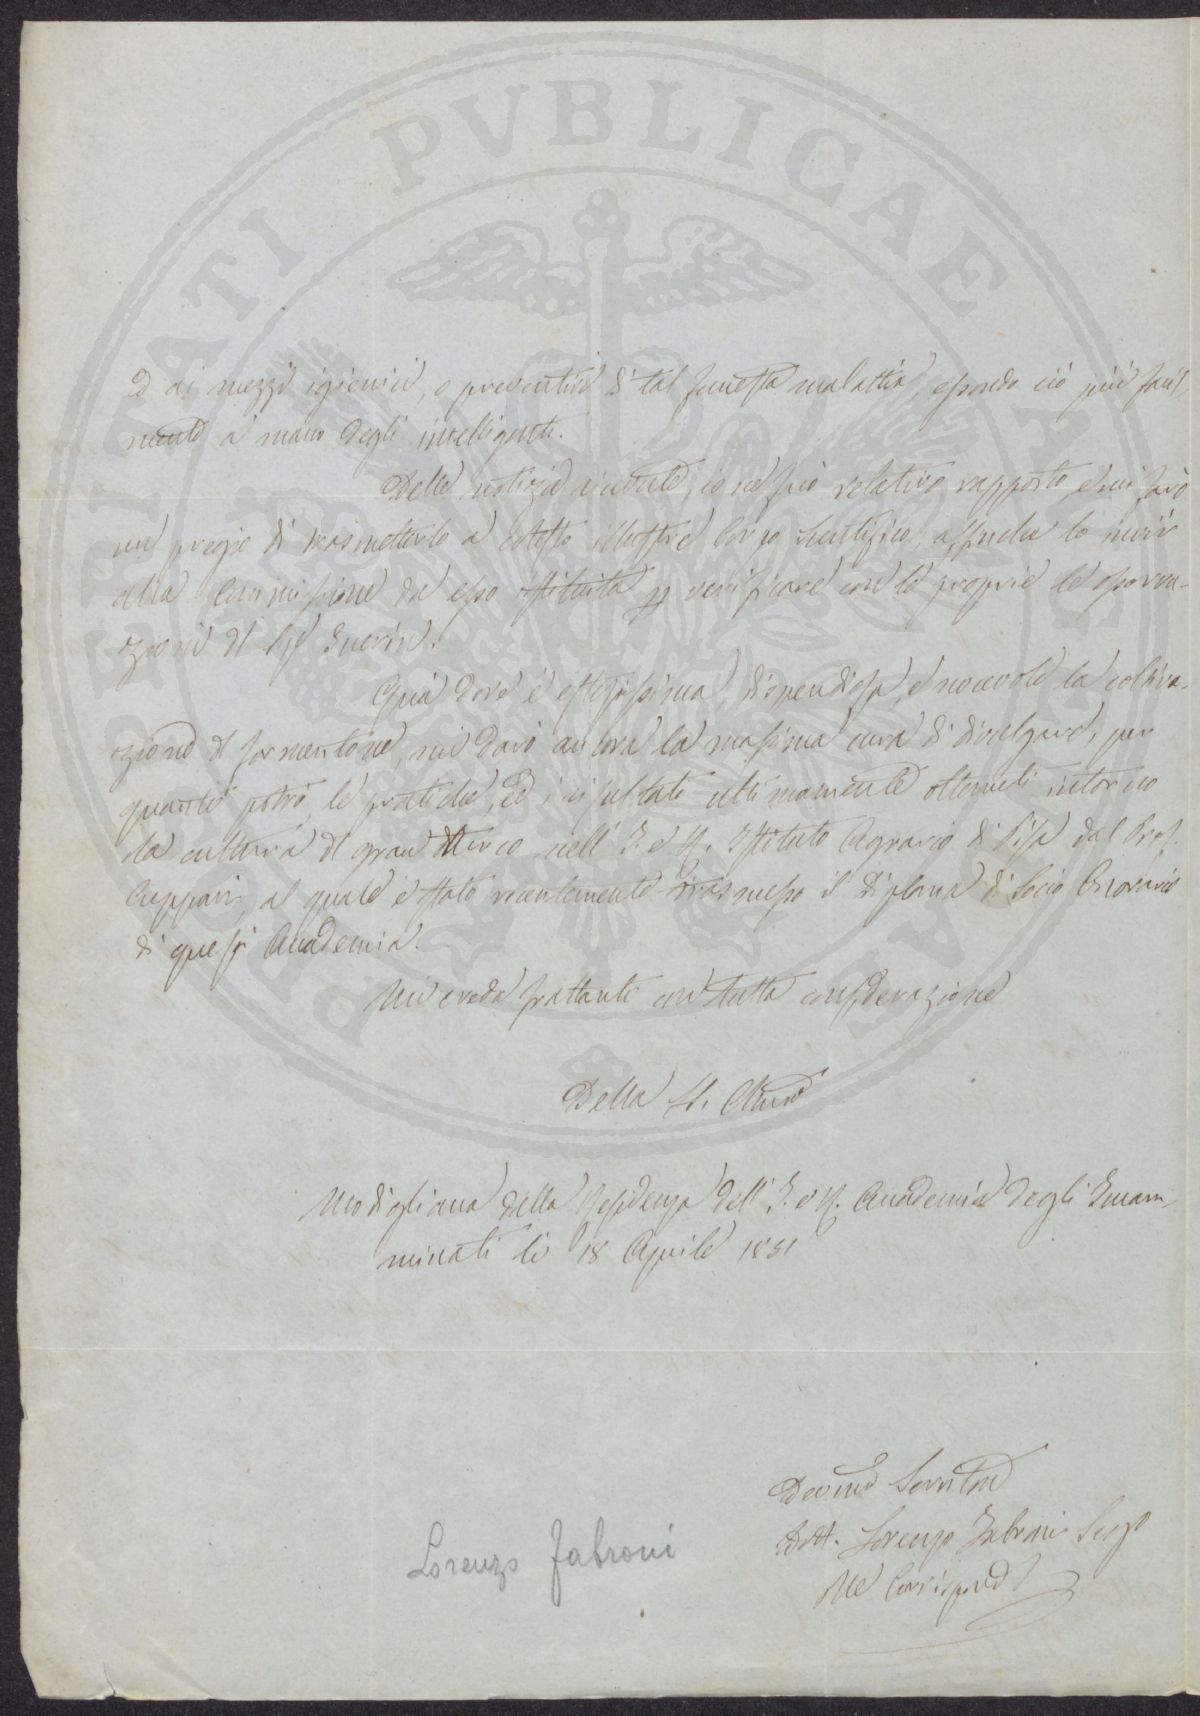 PROSPERITATI PVBLICAE AVGENDAE
e ai mezzi igienici, o preventivi di tal funesta malattia, essendo ciò più facil
mente a mano degli intelligenti.
Delle notizie ricevute, io ne farò relativo rapporto, e mi farò
un pregio di trasmetterlo a cotesto illustre Corpo Scentifico, appena lo invii
alla Commissione da esso istituita per verificare con le proprie le osserva-
zioni del Sigr Guerin.
Quà dove è estesissima, dispendiosa, e nocevole la coltiva-
zione del formentone, mi darò ancora la massima cura di divulgare, per
quanto potrò, le pratiche, ed i risultati ultimamente ottenuti intorno
la cultura del gran turco nell' I. e R. Istituto Agrario di Pisa dal Prof.
Cuppari, al quale è stato recentemente trasmesso il Diploma di Socio Onorario
di questa Accademia.
Mi creda frattanto con tutta considerazione
Della
Modigliana dalla Residenza dell' I. e R. Accademia degli Incam-
minati li 18 Aprile 1851
Devmo Servitore
Dott. Lorenzo Fabroni Segrio
Corrispond
Lorenzo Fabroni